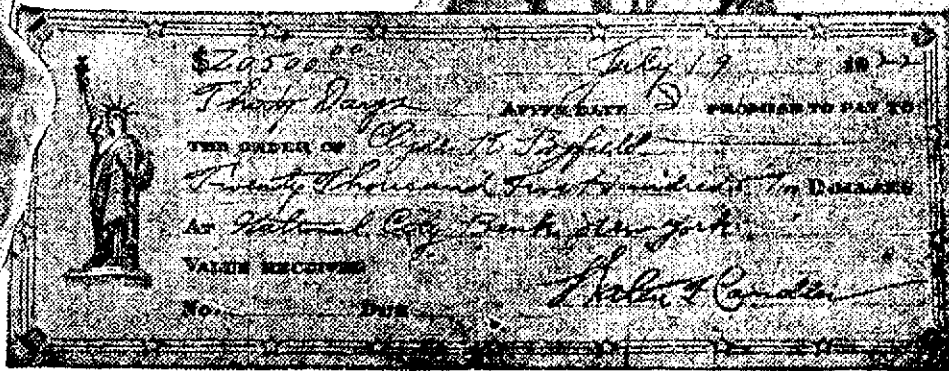 $20500.00 July 19 1922
Thirty Days AFTER DATE I PROMISE TO PAY TO
THE ORDER OF Clyde K.
Twenty Thousand Five Hundred DOLLARS
AT National City Bank, New York
VALUE RECEIVED
No. DUE Candler